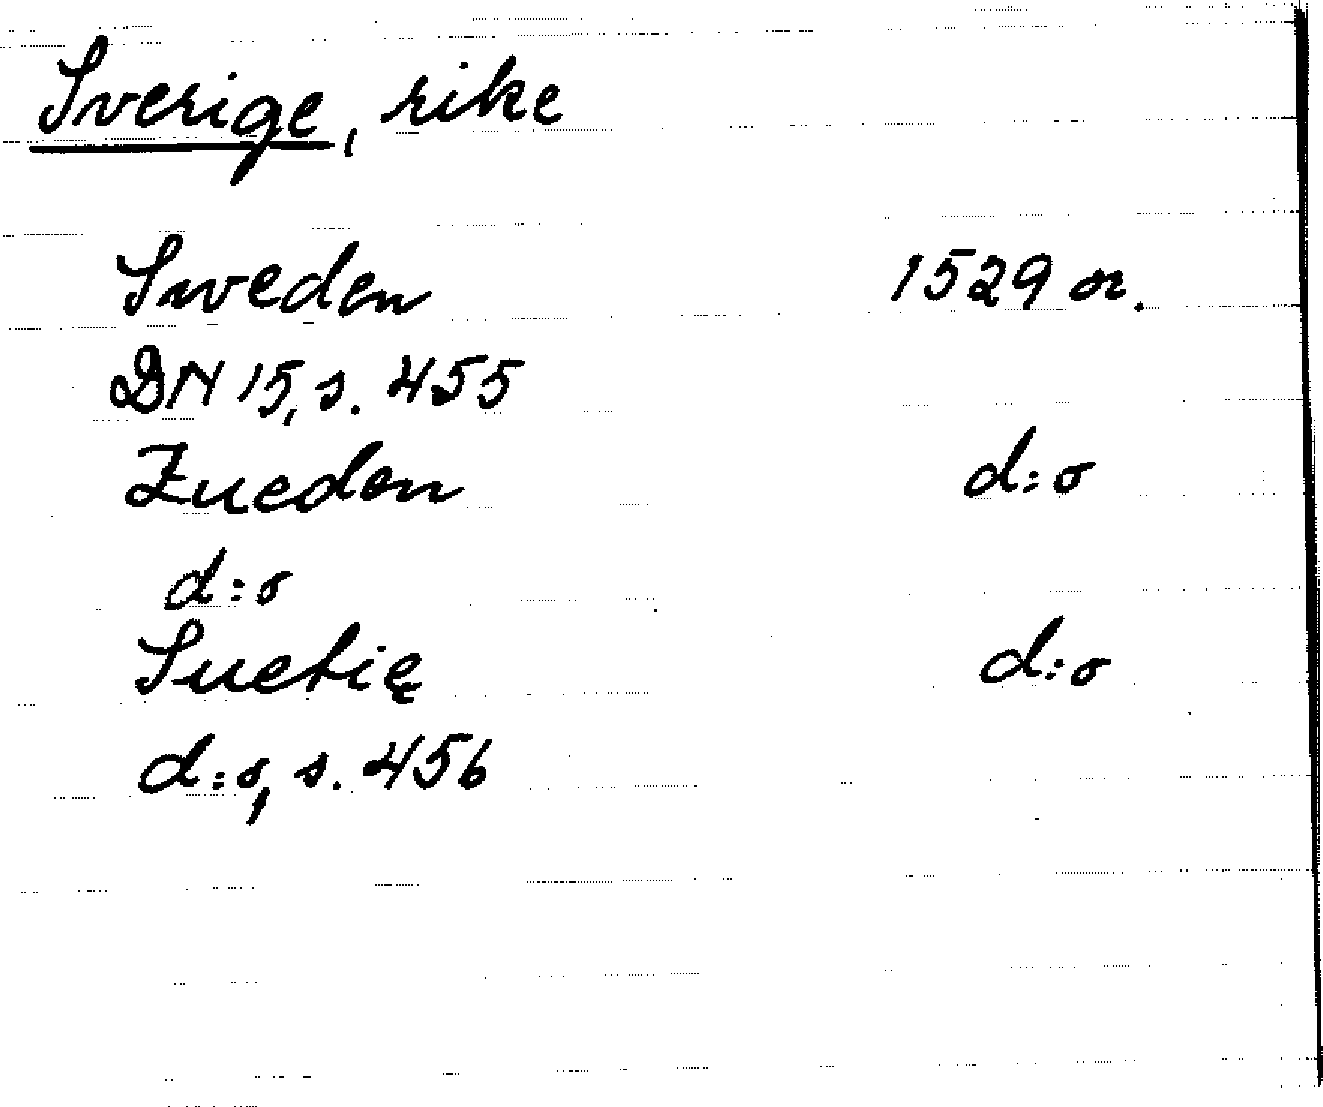 Sverige, rike
Sweden 1529 or.
DN 15, s. 455
Zueden d:o
d:o
Suetię d:o
d:o, s. 456